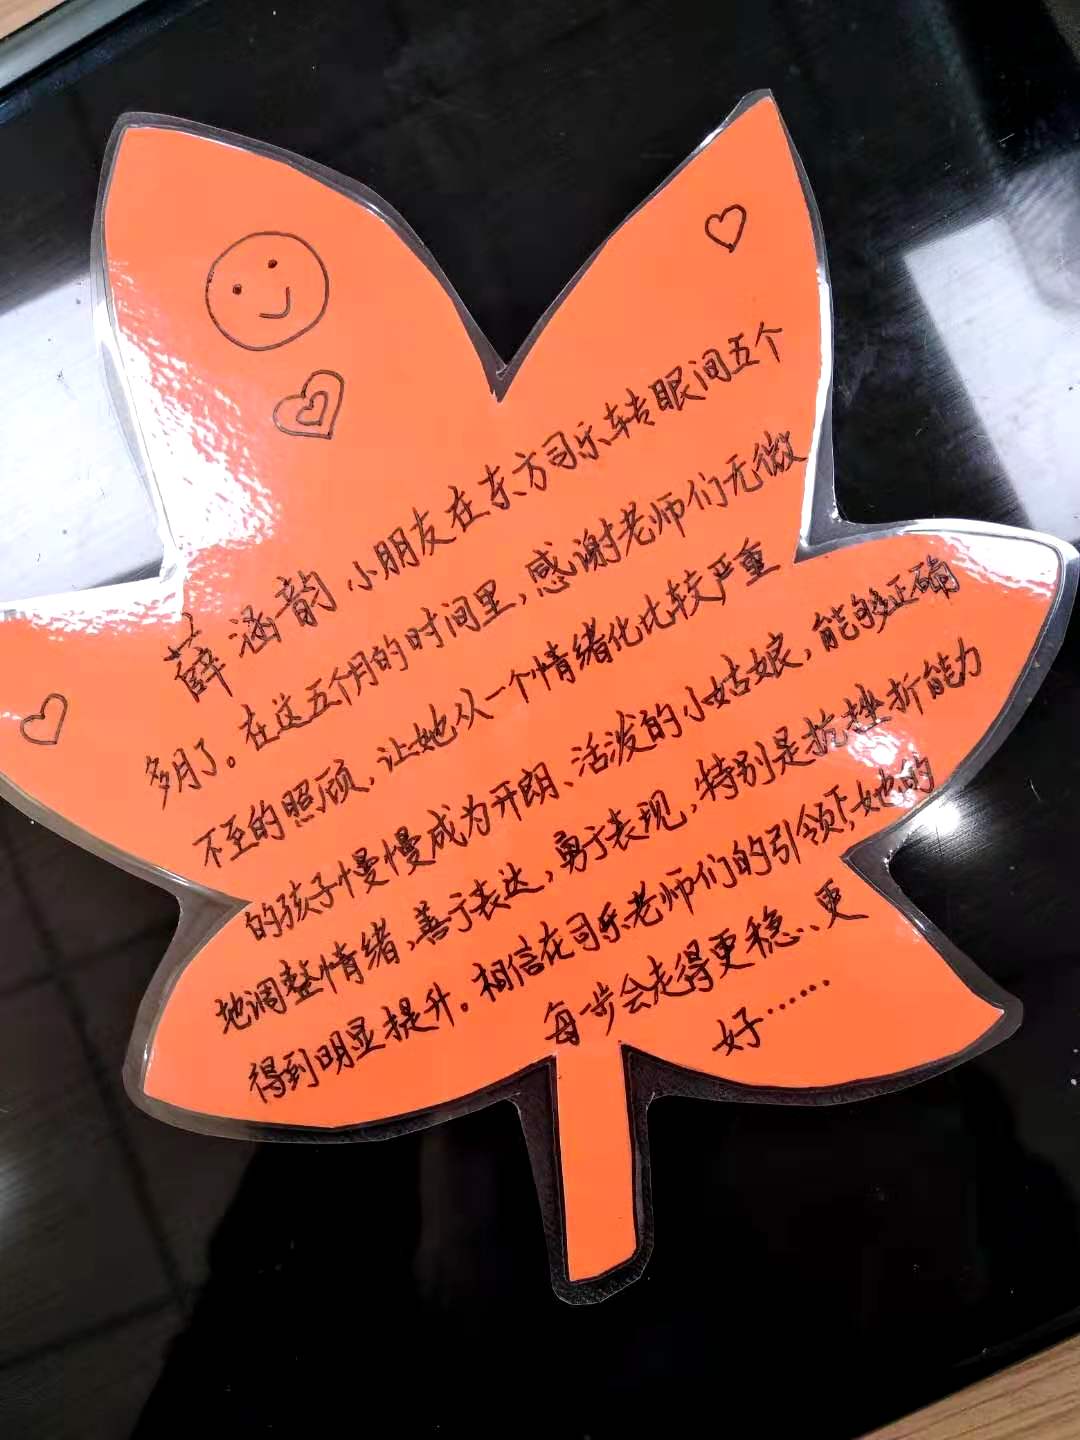 薛涵韵小朋友在东方司乐转眼间五个
多月了。在这五个月的时间里,感谢老师们无微
不至的照顾,让她从一个情绪化比较严重
的孩子慢慢成为开朗、活泼的小姑娘,能够正确
地调整情绪,善于表达,勇于表现,特别是抗挫折能力
得到明显提升。相信在司乐老师们的引领下,她的
每一步会走得更稳、更
好……